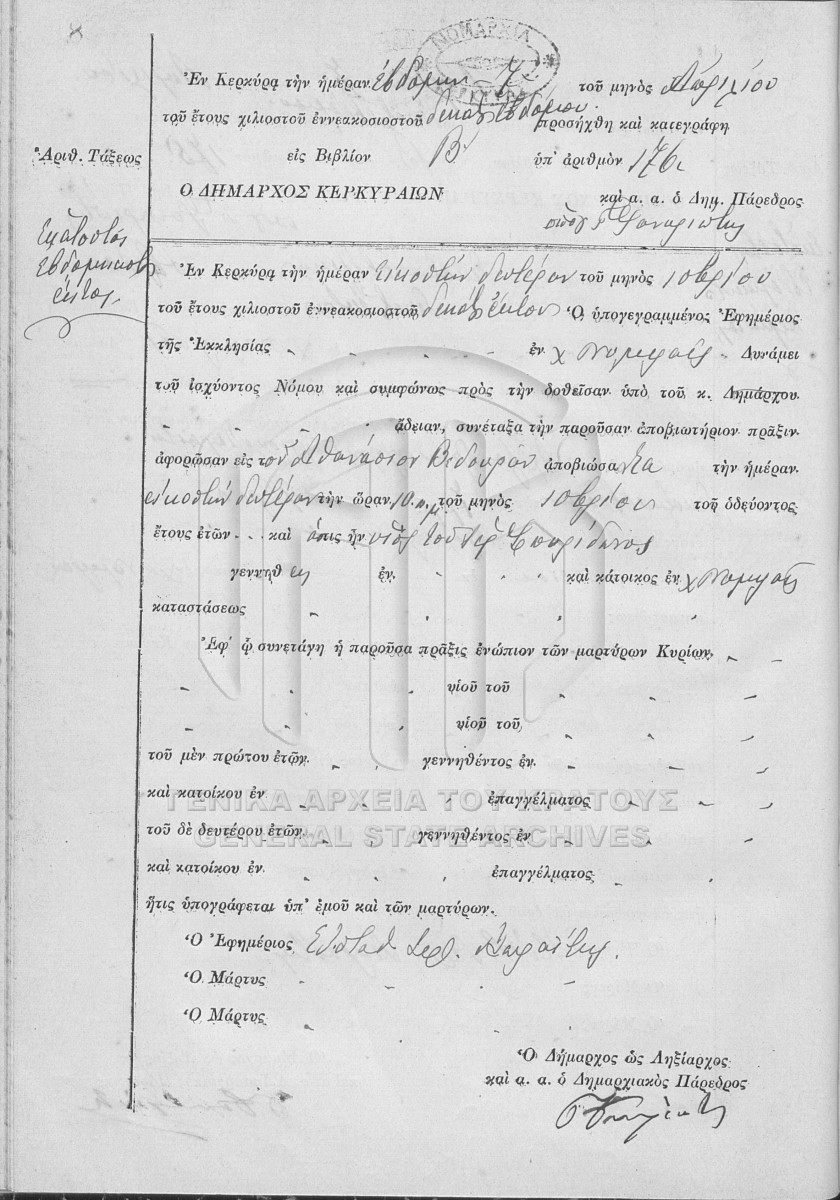 ΝΟΜΑΡΧΙΑ
Ἐν Κερκύρᾳ τὴν ἡμέραν ἑβδόμην 7 τοῦ μηνὸς Ἀπριλίου
τοῦ ἔτους χιλιοστοῦ ἐννεακοσιοστοῦ δεκάτου ἑβδόμου προσήχθη καὶ κατεγράφη
Ἀριθ. Τάξεως
εἰς Βιβλίον Β' ὑπ' ἀριθμὸν 176
Ο ΔΗΜΑΡΧΟΣ ΚΕΡΚΥΡΑΙΩΝ
καὶ α. α. ὁ Δημ. Πάρεδρος
Ἑκατοστὸς
ἑβδομηκοστὸς
ἕκτος
Ἐν Κερκύρᾳ τὴν ἡμέραν εἰκοστὴν δευτέραν τοῦ μηνὸς 10βρίου
τοῦ ἔτους χιλιοστοῦ ἐννεακοσιοστοῦ δεκάτου ἕκτου Ὁ ὑπογεγραμμένος Ἐφημέριος
τῆς Ἐκκλησίας ἐν χ Νυμφαῖς Δυνάμει
τοῦ ἰσχύοντος Νόμου καὶ συμφώνως πρὸς τὴν δοθεῖσαν ὑπὸ τοῦ κ. Δημάρχου
ἄδειαν, συνέταξα τὴν παροῦσαν ἀποβιωτήριον πρᾶξιν
ἀφορῶσαν εἰς τὸν Ἀθανάσιον Βιδουρὰν ἀποβιώσαντα τὴν ἡμέραν
εἰκοστὴν δευτέραν τὴν ὥραν 10 π.μ. τοῦ μηνὸς 10βρίου τοῦ ὁδεύοντος
ἔτους ἐτῶν καὶ ὅστις ἦν υἱὸς τοῦ Σπυρίδωνος
γεννηθεὶς ἐν καὶ κάτοικος ἐν χ Νυμφαῖς
καταστάσεως
Ἐφ' ᾧ συνετάγη ἡ παροῦσα πρᾶξις ἐνώπιον τῶν μαρτύρων Κυρίων
υἱοῦ τοῦ
υἱοῦ τοῦ
τοῦ μὲν πρώτου ἐτῶν γεννηθέντος ἐν
καὶ κατοίκου ἐν ἐπαγγέλματος
ΓΕΝΙΚΑ ΑΡΧΕΙΑ ΤΟΥ ΚΡΑΤΟΥΣ
τοῦ δὲ δευτέρου ἐτῶν γεννηθέντος ἐν
GENERAL STATE ARCHIVES
καὶ κατοίκου ἐν ἐπαγγέλματος
ἥτις ὑπογράφεται ὑπ' ἐμοῦ καὶ τῶν μαρτύρων.
Ὁ Ἐφημέριος Εὐστάθ.
Ὁ Μάρτυς
Ὁ Μάρτυς
Ὁ Δήμαρχος ὡς Ληξίαρχος
καὶ α. α. ὁ Δημαρχιακὸς Πάρεδρος